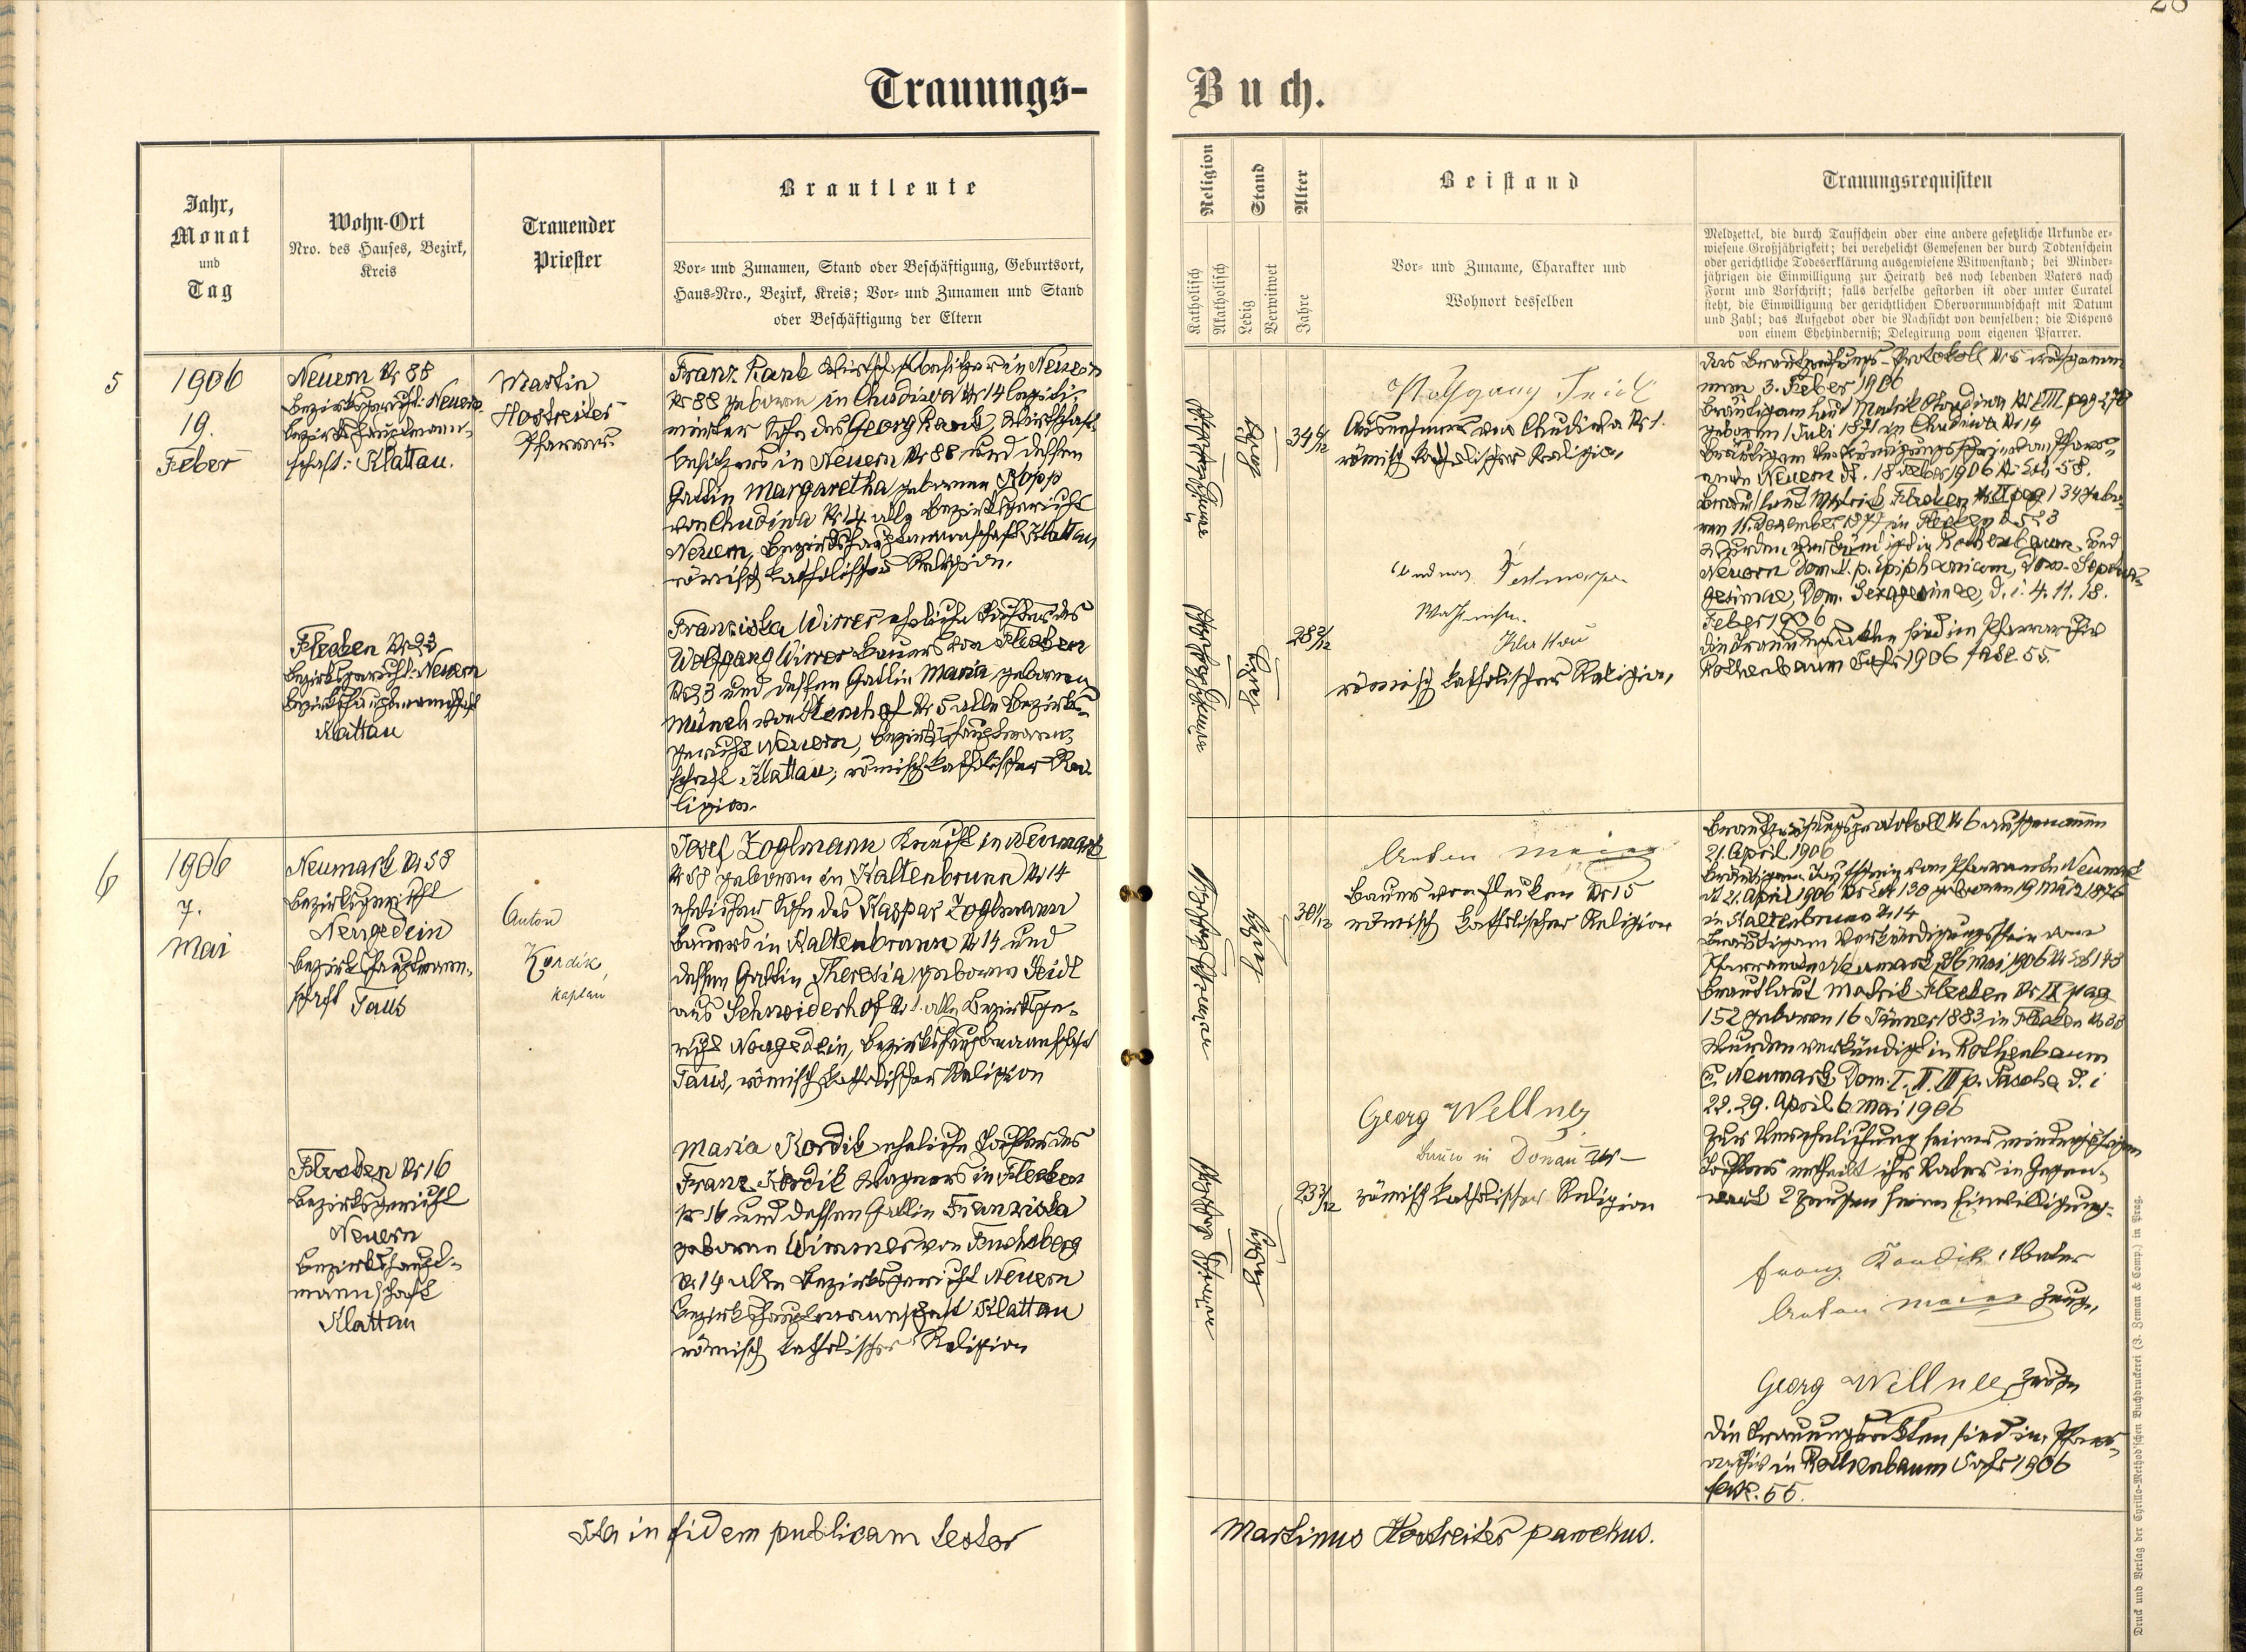 Trauungs-
Buch.
Jahr,
Monat
und
Tag
Wohn-Ort
Nro. des Hauses, Bezirk,
Kreis
Trauender
Priester
Brautleute
Vor- und Zunamen, Stand oder Beschäftigung, Geburtsort,
Haus-Nro., Bezirk, Kreis; Vor- und Zunamen und Stand
oder Beschäftigung der Eltern
Religion
Katholisch
Akatholisch
Stand
Ledig
Verwitwet
Alter
Jahre
Beistand
Vor- und Zuname, Charakter und
Wohnort desselben
Trauungsrequisiten
Meldzettel, die durch Taufschein oder eine andere gesetzliche Urkunde er-
wiesene Großjährigkeit; bei verehelicht Gewesenen der durch Todtenschein
oder gerichtliche Todeserklärung ausgewiesene Witwenstand; bei Minder-
jährigen die Einwilligung zur Heirath des noch lebenden Vaters nach
Form und Vorschrift; falls derselbe gestorben ist oder unter Curatel
steht, die Einwilligung der gerichtlichen Obervormundschaft mit Datum
und Zahl; das Aufgebot oder die Nachsicht von demselben; die Dispens
von einem Ehehinderniß; Delegirung vom eigenen Pfarrer.
5
1906
19.
Feber
Neuern Nr 88
Bezirksgericht: Neuern
Bezirkshauptmann-
schaft: Klattau.
Martin
Hostreiter
Pfarrer
Franz Rank Wirtschaftsbesitzer in Neuern
Nr 88 geboren in Chudiwa Nr 14 legiti-
mirter Sohn des Georg Rank, Wirtschafts-
besitzers in Neuern Nr 88 und dessen
Gattin Margaretha geborenen Kopp
von Chudiwa Nr 14 alle Bezirksgericht
Neuern, Bezirkshauptmannschaft Klattau,
römisch katholischer Religion.
34
Wolfgang
Ausnehmer von Chudiwa Nr 1.
römisch katholischer Religion,
Das Brautprüfungs-Protokoll Nr 5 aufgenom
men 3. Feber 1906
Bräutigam laut Matrik Chudiwa Nr VIII pag 278
geboren 1 Juli 1871 in Chudiwa Nr 14
Bräutigam Verkündigungsschein vom Pfarr-
amte Neuern dt. 18 Feber 1906 Nr 58.
Braut laut Matrik Flecken Nr IX pag 134 gebo-
ren 11. Dezember 1877 in Flecken Nr 23
Wurden verkündigt in Rothenbaum und
Neuern Dom. p. Epiphaniam, Dom. Septua-
gesimae, Dom. Sexagesimae, d. i. 4. 11. 18.
Feber 1906
Die Trauungsakten sind im Pfarrarchiv
Rothenbaum Jahr 1906 fasc. 55.
Flecken Nr 23
Bezirksgericht: Neuern
Bezirkshauptmannschaft
Klattau
Franziska Wirrer eheliche Tochter des
Wolfgang Wirrer Bauers von Flecken
Nr 23 und dessen Gattin Maria geborenen
Münch von Nr 5 alle Bezirks-
gericht Neuern, Bezirkshauptmann-
schaft Klattau; römisch katholischer Re-
ligion.
28 2/12
Klattau
römisch katholischer Religion,
6
1906
7.
Mai
Neumark Nr 58
Bezirksgericht
Neugedein
Bezirkshauptmann-
schaft Taus
Anton
Kordik,
Kaplan
Josef Zoglmann Knecht in Neumark
Nr 58 geboren in Kaltenbrunn Nr 14
ehelicher Sohn des Kaspar Zoglmann
Bauers in Kaltenbrunn Nr 14 und
dessen Gattin Theresia geborene Seidl
aus Schneiderhof Nr 1. alle Bezirksge-
richt Neugedein, Bezirkshauptmannschaft
Taus, römisch katholischer Religion
30 1/12
Anton Maier
Bauer von Flecken Nr 15
römisch katholischer Religion
Brautprüfungsprotokoll Nr 6 aufgenommen
21. April 1906
Bräutigam Taufschein vom Pfarramte Neumark
dt 21. April 1906 Nr 130 geboren 19 März 1876
in Kaltenbrunn Nr 14
Bräutigam Verkündigungsschein vom
Pfarramte Neumark dt 6 Mai 1906 Nr 143
Braut laut Matrik Flecken Nr IX pag
152 geboren 16 Jänner 1883 in Flecken Nr 38
Wurden verkündigt in Rothenbaum
u. Neumark Dom. I. II. III p. Pascha d. i
22. 29. April 6 Mai 1906
Zur Verehelichung seiner minderjährigen
Tochter ertheilt ihr Vater in Gegen-
wart 2 Zeugen seine Einwilligung.
Franz Kordik, Vater
Anton Maier Zeuge,
Georg Wellner Zeuge
Die Trauungsakten sind im Pfarr-
archiv in Rothenbaum Jahr 1906
fasc. 55.
Flecken Nr 16
Bezirksgericht
Neuern
Bezirkshaupt-
mannschaft
Klattau
Maria Kordik eheliche Tochter des
Franz Kordik Wagners in Flecken
Nr 16 und dessen Gattin Franziska
geborene Wimmer von Fuchsberg
Nr 14 alle Bezirksgericht Neuern
Bezirkshauptmannschaft Klattau
römisch katholischer Religion
23 3/12
Georg Wellner
Bauer in Donau
römisch katholischer Religion
Ita in fidem publicam testor
Martinus Hostreiter parochus.
Druck und Verlag der Cyrillo-Method'schen Buchdruckerei (J. Zeman & Comp.) in Prag.